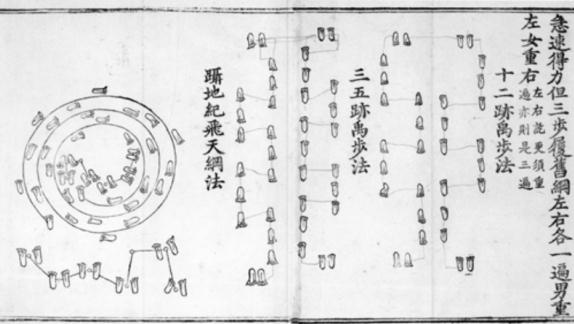 急速得力但三步履舊綱左右各一遍男重
左女重右左右訖更須重遍亦則是三遍
十二跡禹步法
三五跡禹步法
躡地紀飛天綱法